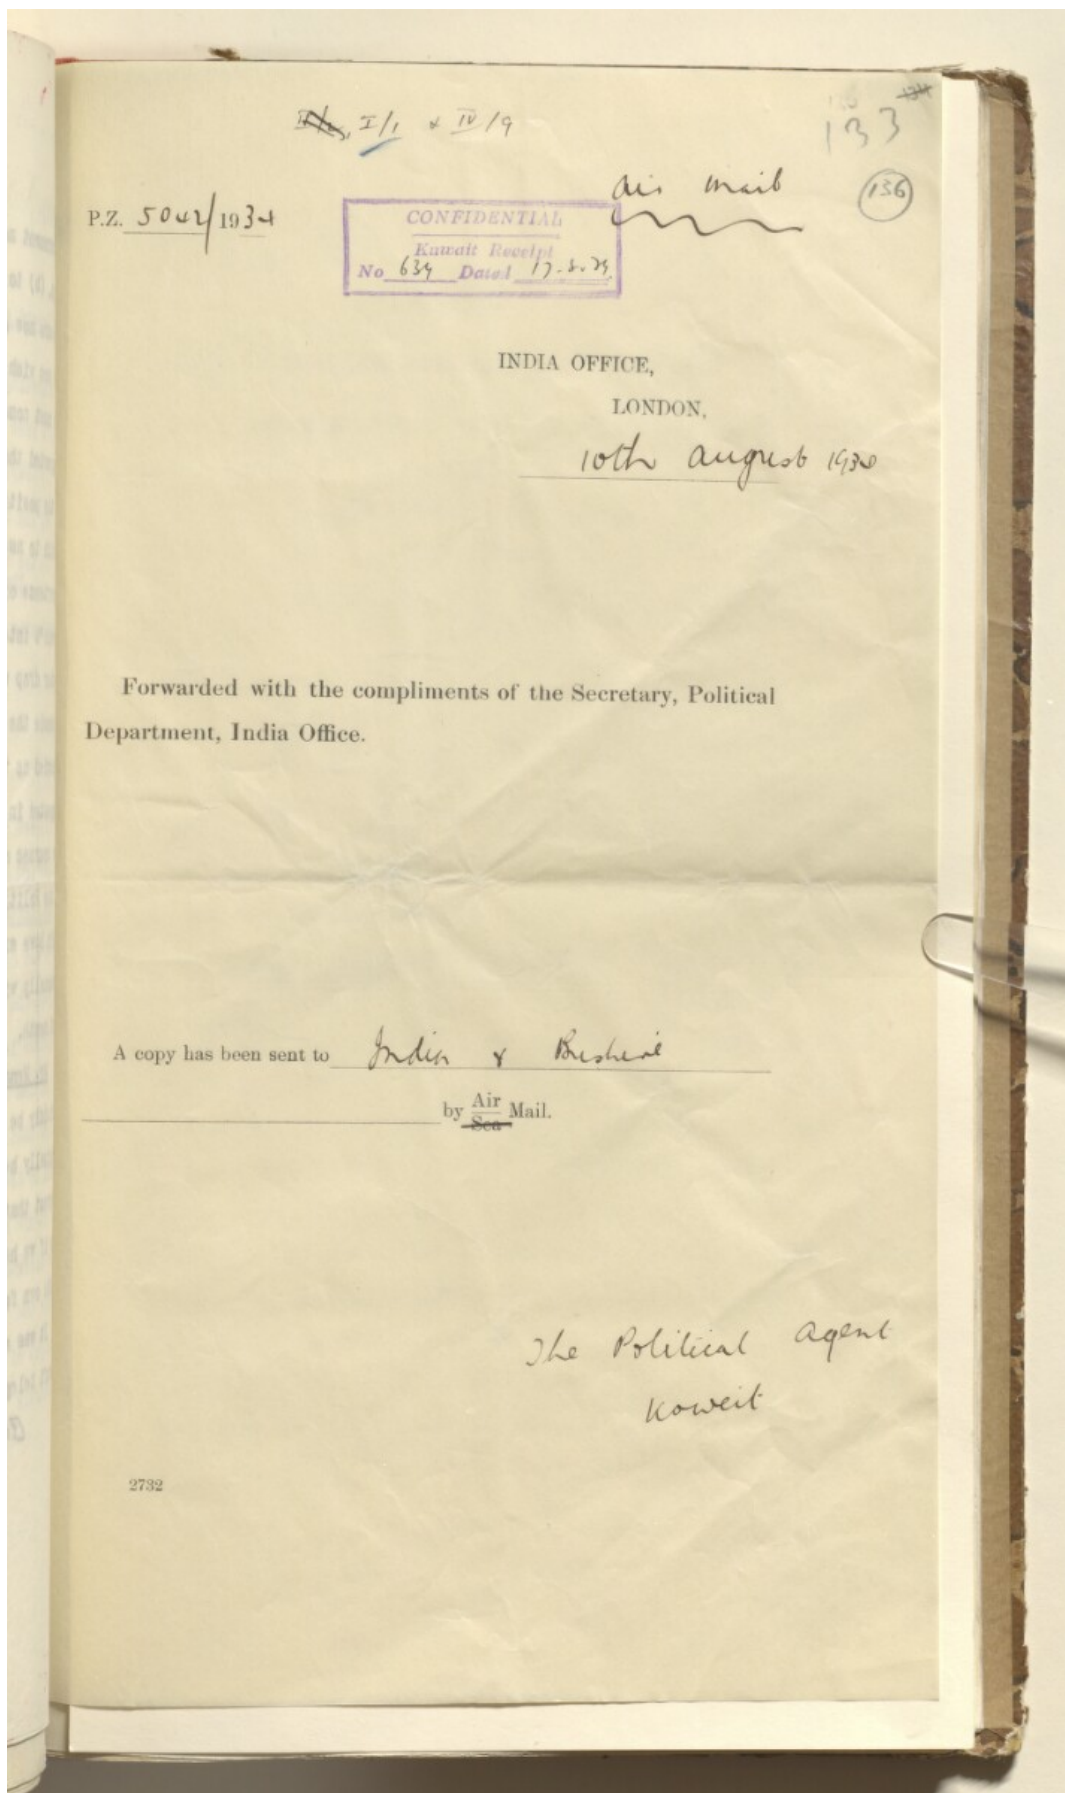 I/1 & IV/9
133
Air Mail
136
P.Z. 5042/1934
CONFIDENTIAL
Kuwait Receipt
No 639 Dated 17.8.34
INDIA OFFICE,
LONDON,
10th August 1934
Forwarded with the compliments of the Secretary, Political
Department, India Office.
A copy has been sent to India & Bushire
by Air
Sea Mail.
The Political Agent
Koweit
2732